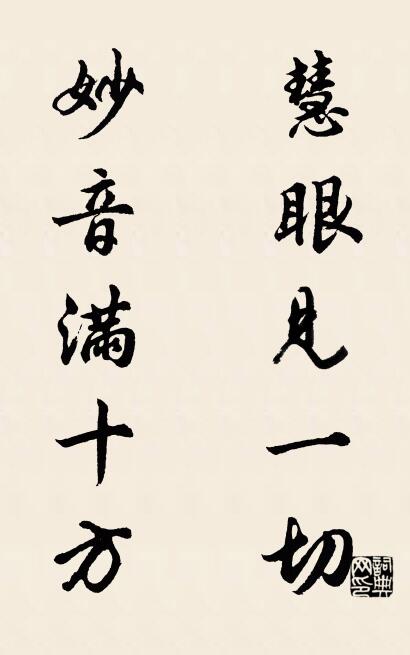 慧眼見一切
妙音滿十方
詞典網印